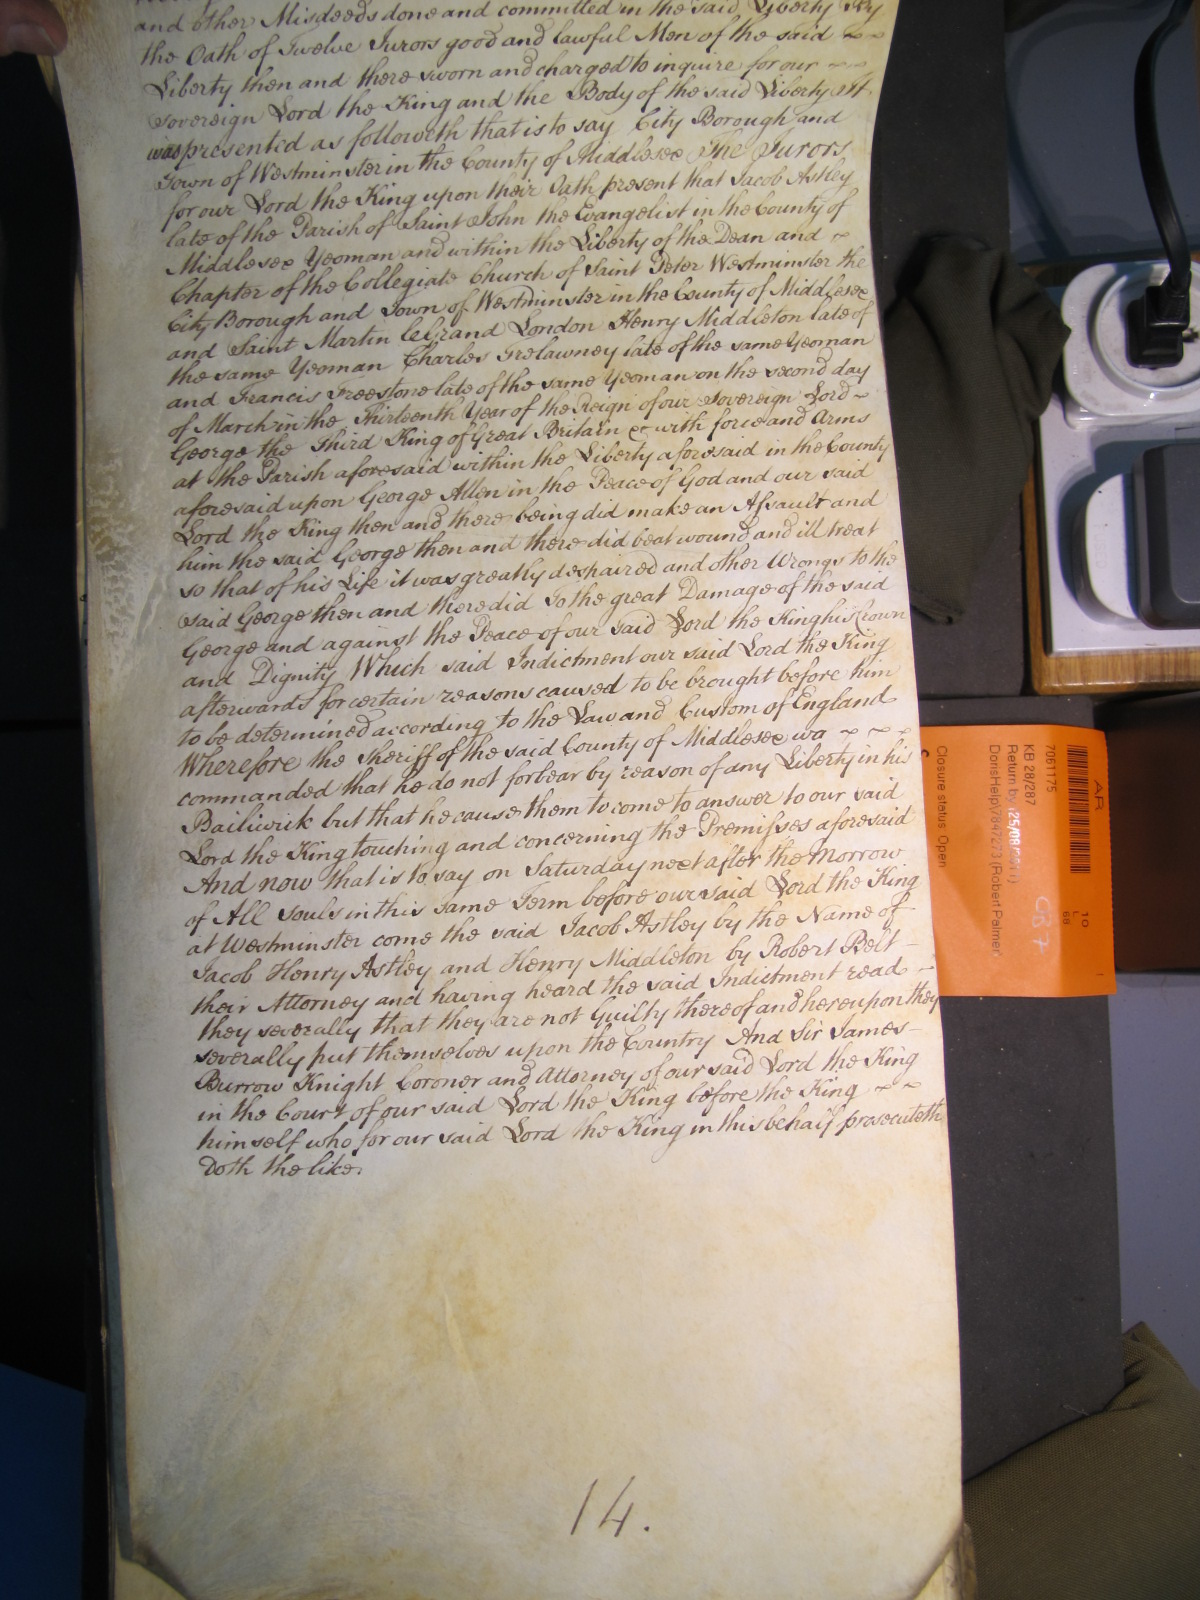 and other Misdeeds done and committed in the said Liberty By
the Oath of Twelve Jurors good and lawful Men of the said ~~
Liberty then and there sworn and charged to inquire for our ~~
Sovereign Lord the King and the Body of the said Liberty It
was presented as followeth that is to say City Borough and
Town of Westminster in the County of Middlesex The Jurors
for our Lord the King upon their Oath present that Jacob Astley
late of the Parish of Saint John the Evangelist in the County of
Middlesex Yeoman and within the Liberty of the Dean and ~
Chapter of the Collegiate Church of Saint Peter Westminster the
City Borough and Town of Westminster in the County of Middlesex
and Saint Martin le Grand London Henry Middleton late of
the same Yeoman Charles Trelawney late of the same Yeoman
and Francis Freestone late of the same Yeoman on the second day
of March in the Thirteenth Year of the Reign of our Sovereign Lord ~
George the Third King of Great Britain &c with force and Arms
at the Parish aforesaid within the Liberty aforesaid in the County
aforesaid upon George Allen in the Peace of God and our said
Lord the King then and there being did make an Assault and
him the said George then and there did beat wound and ill treat
so that of his Life it was greatly despaired and other Wrongs to the
said George then and there did To the great Damage of the said
George and against the Peace of our said Lord the King his Crown
and Dignity Which said Indictment our said Lord the King
afterwards for certain reasons caused to be brought before him
to be determined according to the Law and Custom of England
Wherefore the Sheriff of the said County of Middlesex wa ~ ~ ~
commanded that he do not forbear by reason of any Liberty in his
Bailiwick but that he cause them to come to answer to our said
Lord the King touching and concerning the Premisses aforesaid
And now that is to say on Saturday next after the Morrow
of All Souls in this same Term before our said Lord the King
at Westminster come the said Jacob Astley by the Name of
Jacob Henry Astley and Henry Middleton by Robert Belt –
their Attorney and having heard the said Indictment read –
they severally that they are not Guilty thereof and hereupon they
severally put themselves upon the Country And Sir James –
Burrow Knight Coroner and Attorney of our said Lord the King
in the Court of our said Lord the King before the King ~ ~
himself who for our said Lord the King in this behalf prosecuteth
Doth the like.
14.
AR
7061175
KB 28/287
Return by
(Robert Palmer
Closure status: Open